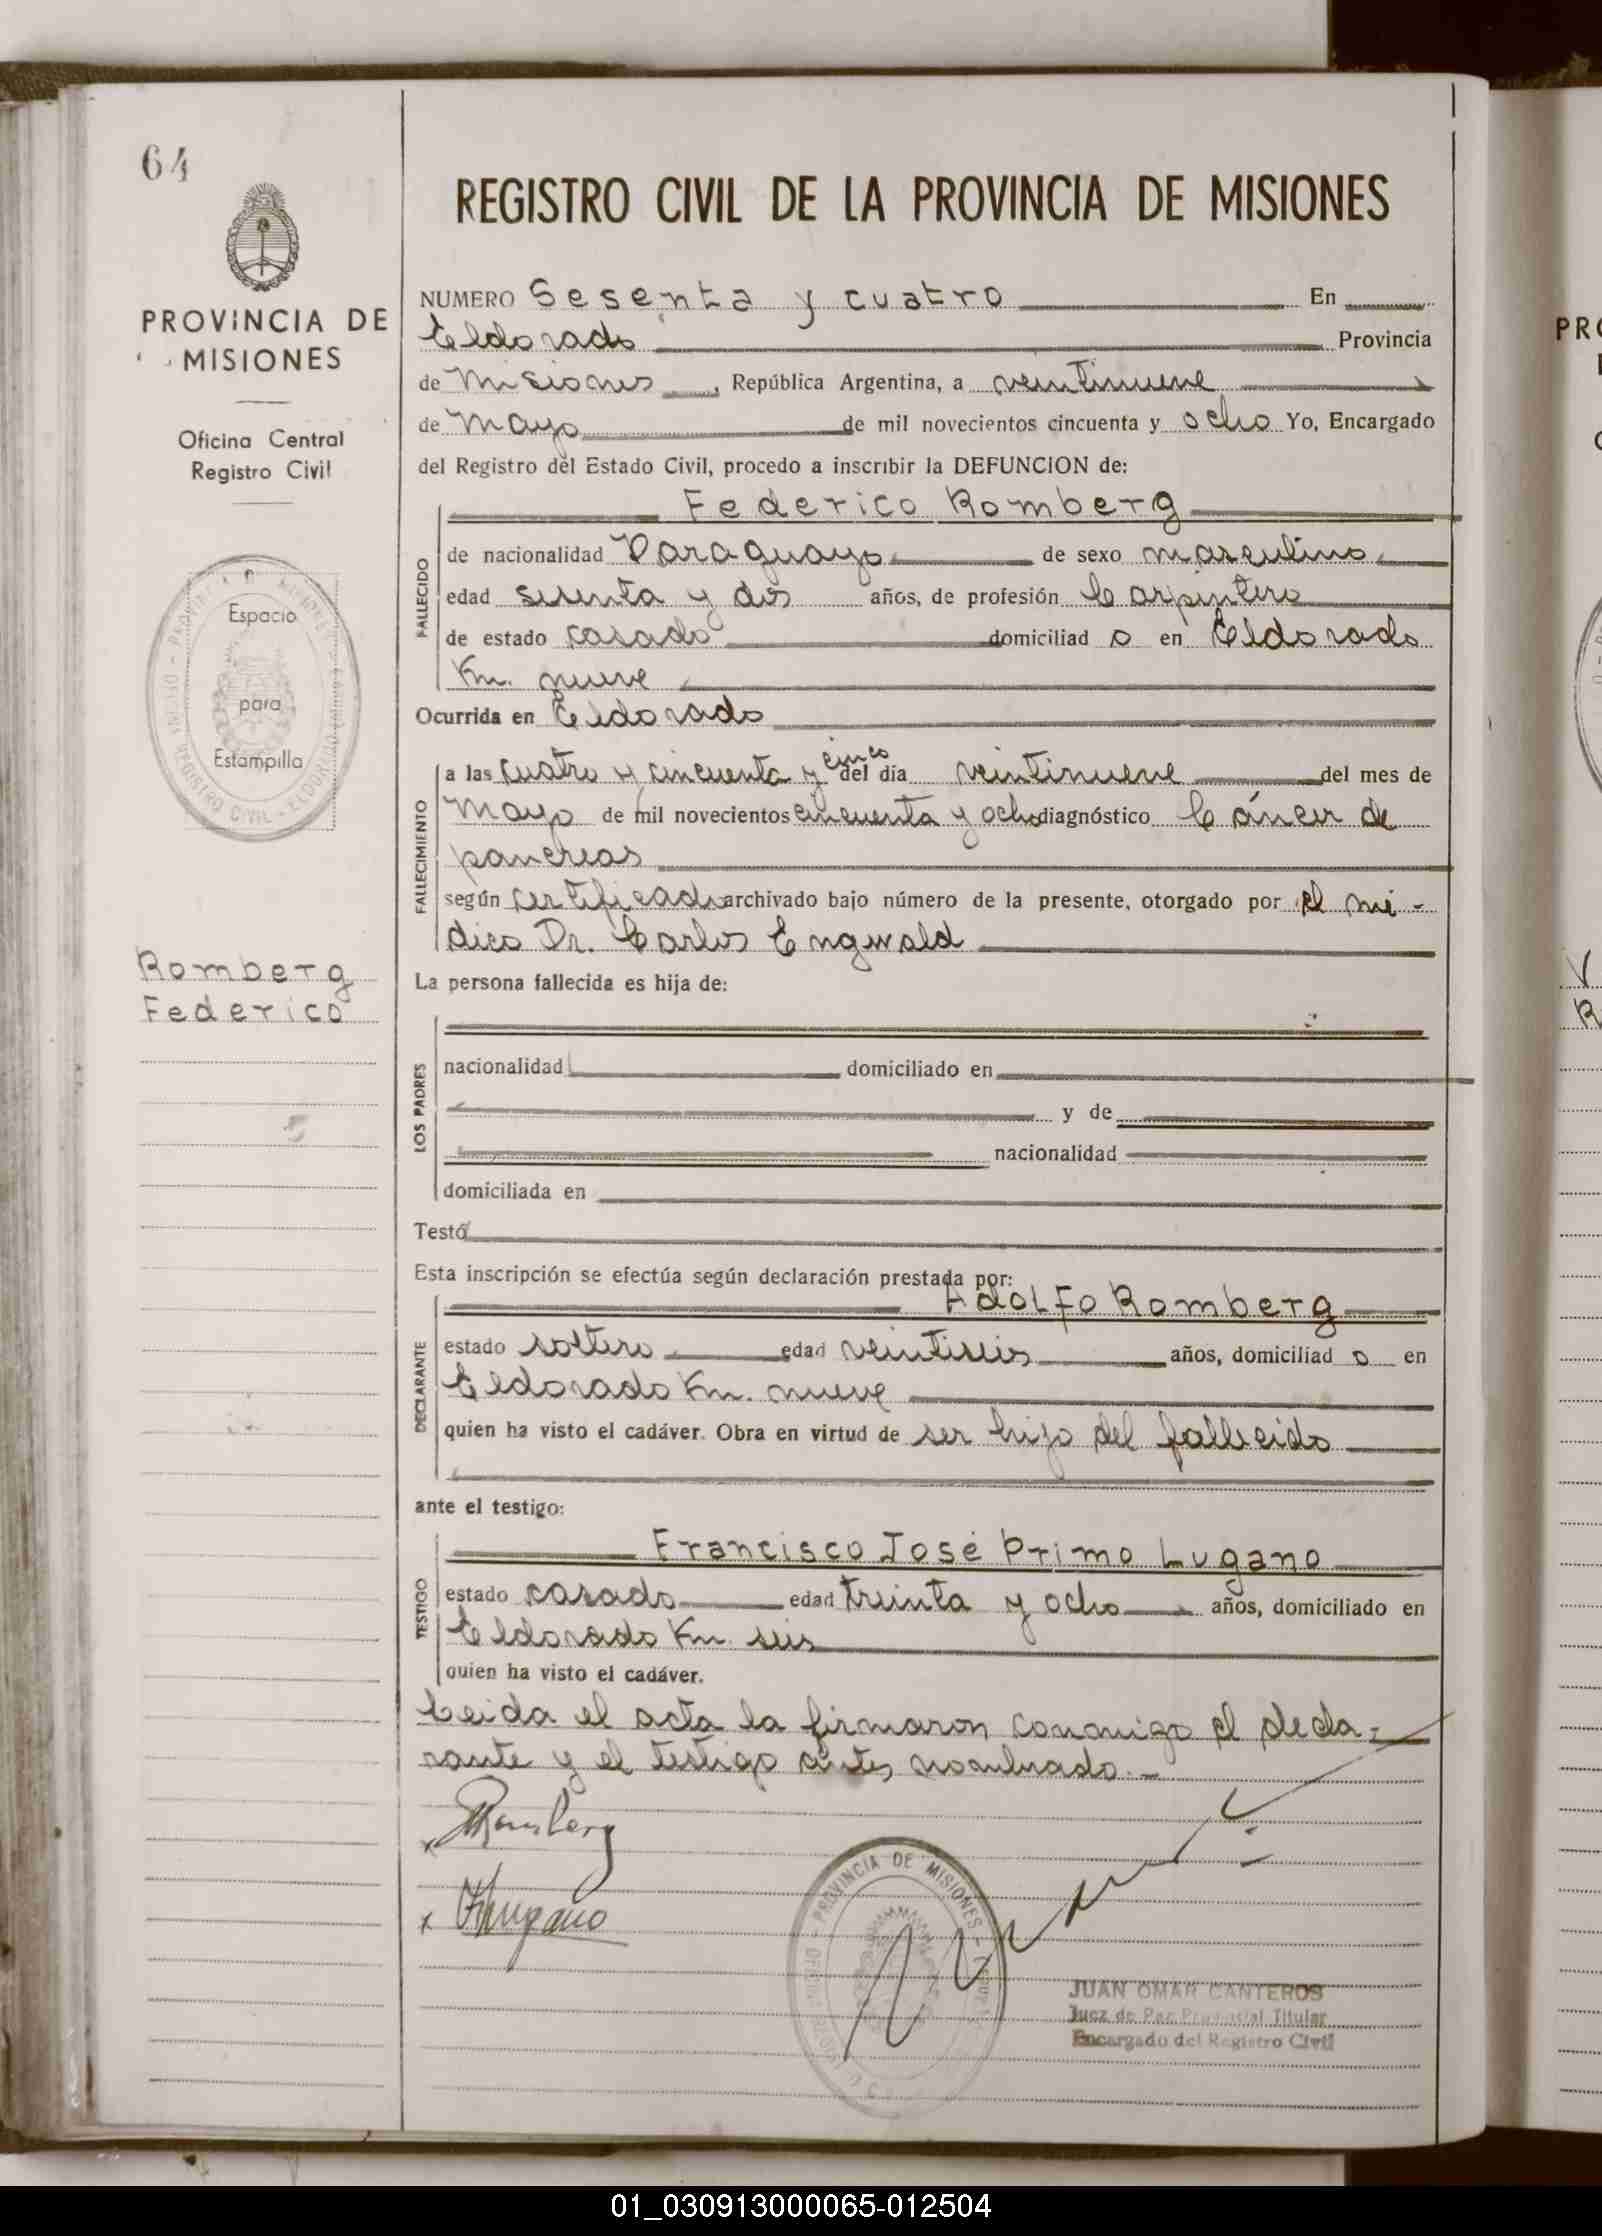 64
PROVINCIA DE
MISIONES
Oficina Central
Registro Civil
Espacio
para
Estampilla
Romberg
Federico
REGISTRO CIVIL DE LA PROVINCIA DE MISIONES
NUMERO Sesenta y cuatro En
Eldorado Provincia
de Misiones, República Argentina, a veintinueve
de Mayo de mil novecientos cincuenta y ocho Yo, Encargado
del Registro del Estado Civil, procedo a inscribir la DEFUNCION de:
Federico Romberg
FALLECIDO
de nacionalidad Paraguayo de sexo masculino
edad sesenta y dos años, de profesión Carpintero
de estado casado domiciliad o en Eldorado
Km. nueve
Ocurrida en Eldorado
FALLECIMIENTO
a las cuatro y cincuenta y cinco del día veintinueve del mes de
Mayo de mil novecientos cincuenta y ocho diagnóstico Cáncer de
pancreas
según certificado archivado bajo número de la presente, otorgado por el mé-
dico Dr. Carlos Engwald
La persona fallecida es hija de:
LOS PADRES
nacionalidad domiciliado en
y de
nacionalidad
domiciliada en
Testó
Esta inscripción se efectúa según declaración prestada por:
Adolfo Romberg
DECLARANTE
estado soltero edad veintiseis años, domiciliad o en
Eldorado Km. nueve
quien ha visto el cadáver. Obra en virtud de ser hijo del fallecido
ante el testigo:
Francisco José Primo Lugano
TESTIGO
estado casado edad treinta y ocho años, domiciliado en
Eldorado Km. seis
quien ha visto el cadáver.
Leida el acta la firmaron conmigo el decla-
rante y el testigo antes nombrado.-
Romberg
Lugano
PROVINCIA DE MISIONES
JUAN OMAR CANTEROS
Juez de Paz Provincial Titular
Encargado del Registro Civil
01_030913000065-012504